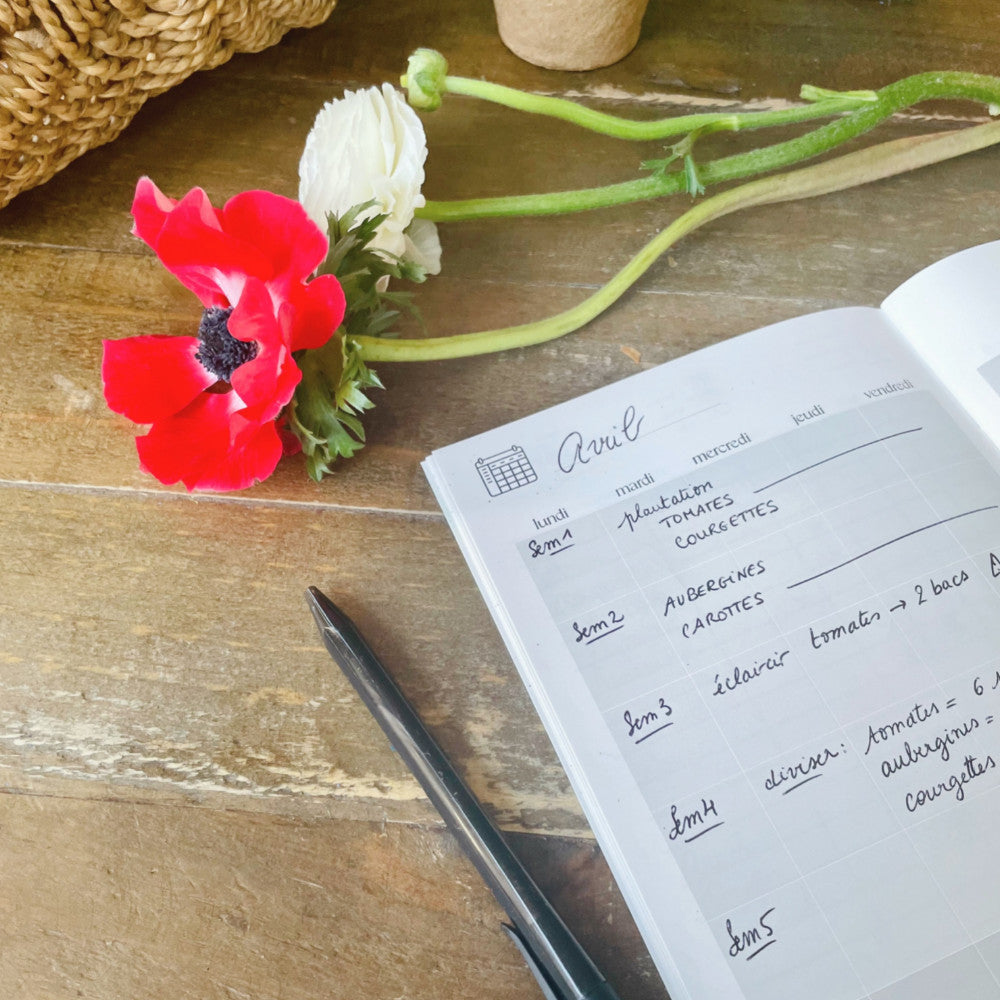 Avril
lundi mardi mercredi jeudi vendredi
Sem 1 plantation
TOMATES
COURGETTES
Sem 2 AUBERGINES
CAROTTES
Sem 3 éclaircir tomates → 2 bacs
Sem 4 diviser: tomates = 6
aubergines =
courgettes
Sem 5